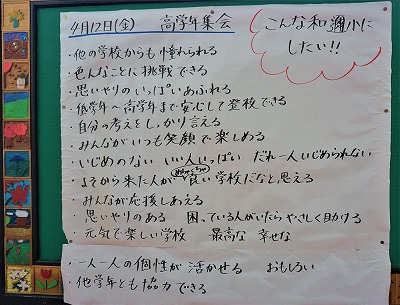 4月12日(金)　高学年集会
こんな和邇小に
したい!!
・他の学校からも憧れられる
・色んなことに挑戦できる
・思いやりのいっぱいあふれる
・低学年～高学年まで安心して登校できる
・自分の考えをしっかり言える
・みんながいつも笑顔で楽しめる
・いじめのない　いい人いっぱい　だれ一人いじめられない
・よそから来た人が良い学校だなと思える
・みんなが応援しあえる
・思いやりのある　困っている人がいたらやさしく助ける
・元気で楽しい学校　最高な　幸せな
・一人一人の個性が活かせる　おもしろい
・他学年とも協力できる